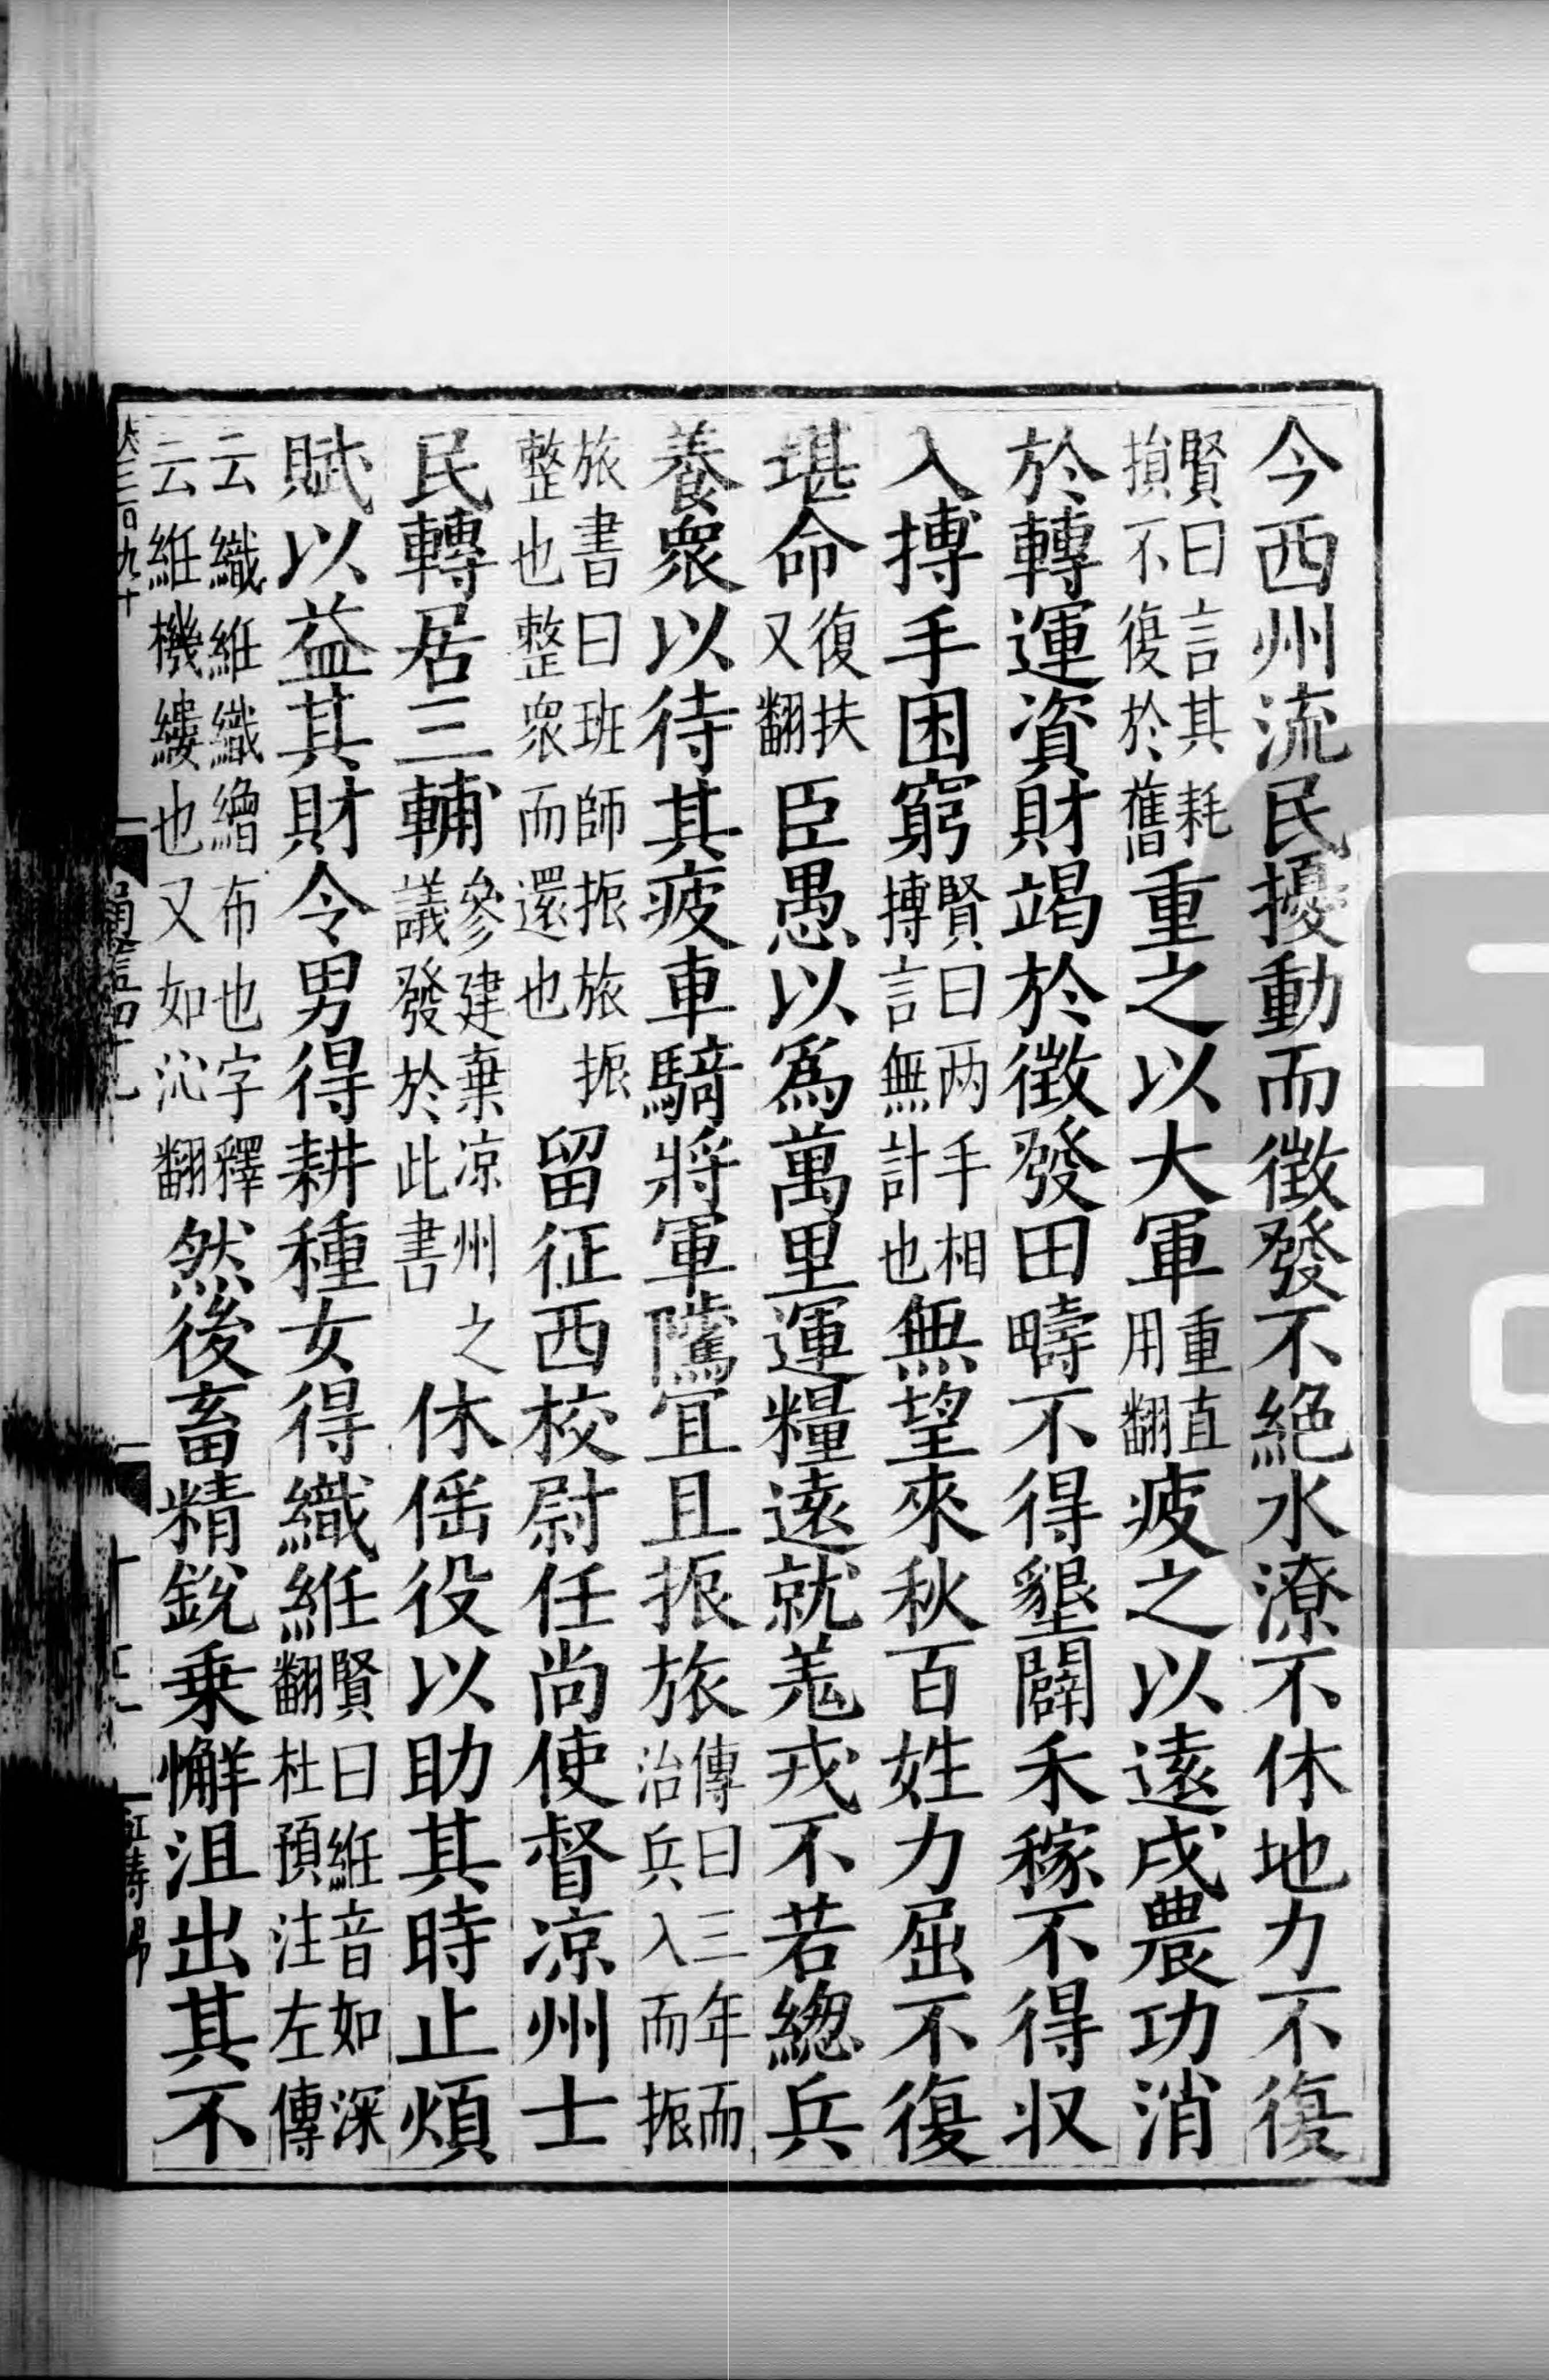 今西州流民擾動而徵發不絕水潦不休地力不復
賢曰言其耗損不復於舊重之以大軍重直用翻疲之以遠戍農功消
於轉運資財竭於徵發田疇不得墾闢禾稼不得収
入搏手困窮賢曰两手相搏言無計也無望來秋百姓力屈不復
堪命復扶又翻臣愚以爲萬里運糧遠就羗戎不若緫兵
養衆以待其疲車騎將軍隲宜且振旅傳曰三年而治兵入而振
旅書曰班師振旅振整也整衆而還也留征西校尉任尚使督凉州士
民轉居三輔參建棄凉州之議發於此書休傜役以助其時止煩
賦以益其財令男得耕種女得織絍賢曰絍音如深翻杜預注左傳
云織絍織繒布也字釋云絍機縷也又如沁翻然後畜精銳乗懈沮出其不